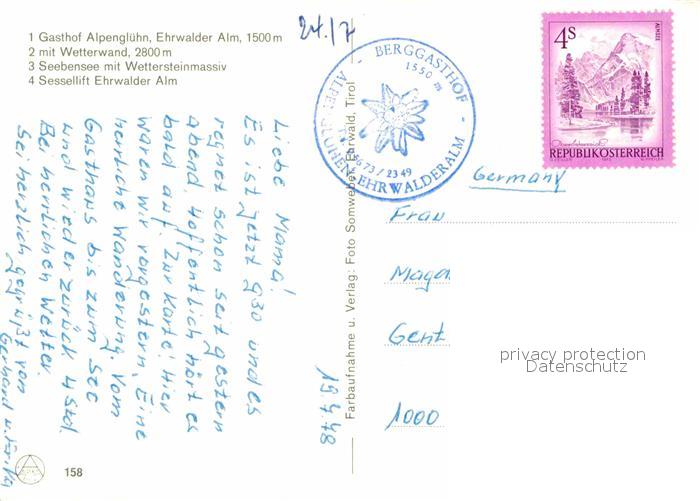 1 Gasthof Alpenglühn, Ehrwalder Alm, 1500 m
2 mit Wetterwand, 2800 m
3 Seebensee mit Wettersteinmassiv
4 Sessellift Ehrwalder Alm
24./7
BERGGASTHOF
1550 m
673/2349
EHRWALDERALM
4 S
ALMSEE
REPUBLIK ÖSTERREICH
Liebe Mama!
Es ist jetzt 9 30 und es
regnet schon seit gestern
abend. Hoffentlich hört es
bald auf. Zur Karte: Hier
waren wir vorgestern. Eine
herrliche Wanderung vom
Gasthaus bis zum See
und wieder zurück 4 Std.
Bei herrlichen Wetter.
Sei herzlich gegrüßt von
Gerhard u.
19.4.78
Farbaufnahme u. Verlag: Foto Somweber, Ehrwald, Tirol
Germany
Frau
Maga
Gent
1000
privacy protection
Datenschutz
158